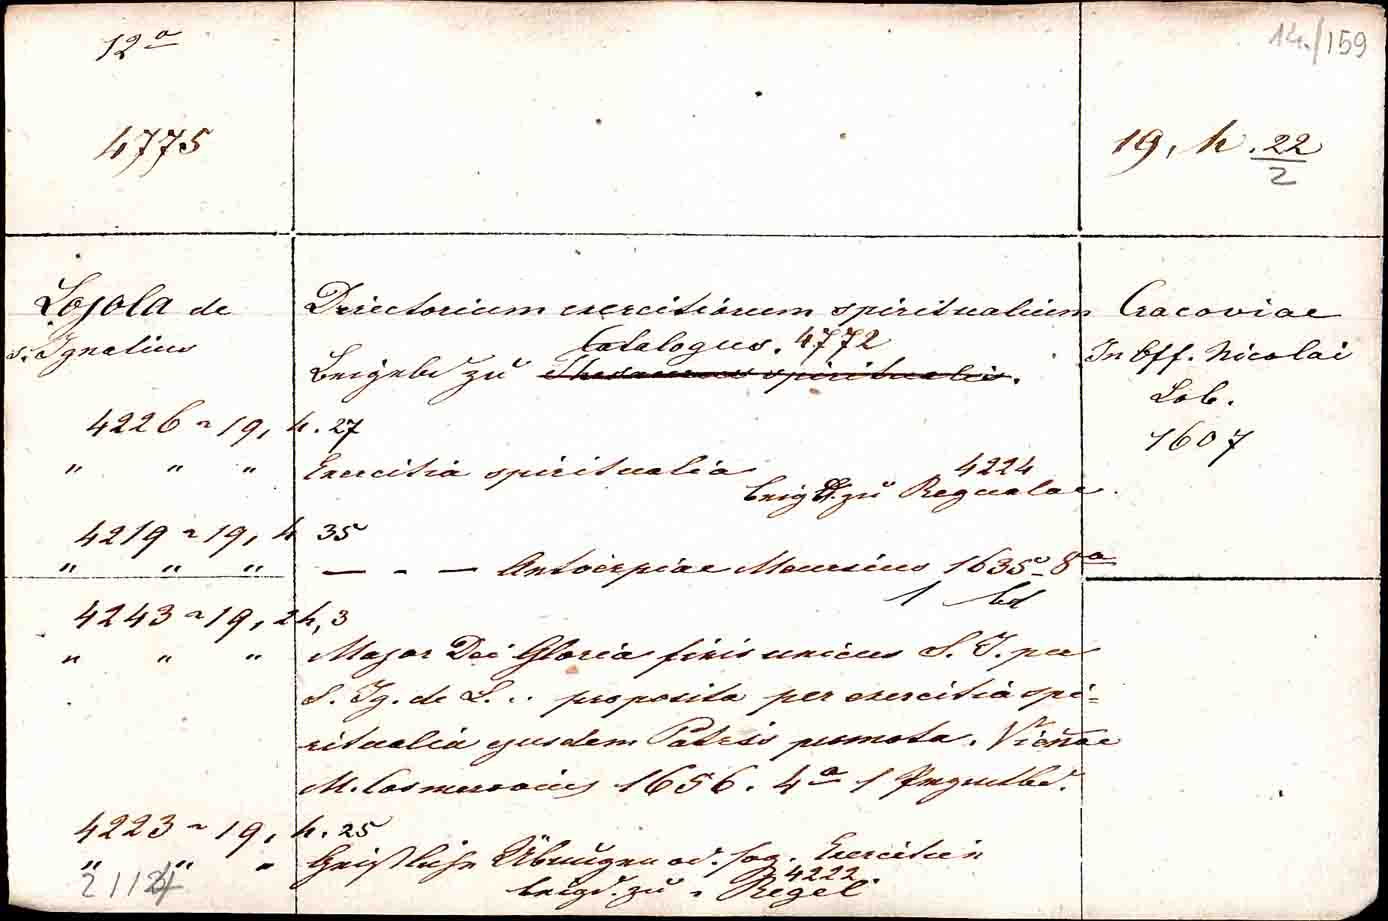 12º
14./159
4775
19, h. 22
2
Lojola de
s. Ignatius
Directorium exercitiorum spiritualium
Catalogus. 4772
Beigebd zu Thesaurus spiritualis.
Cracoviae
In Off. Nicolai
Lob.
1607
4226 ~ 19, h. 27
" " " Exercitia spiritualia 4224
beigb. zu Regualae
4219 ~ 19, h 35
" " " — - — Antverpiae Meursius 1635 - 8º
1 bd
4243 ~ 19, h, 3
" " " Major Dei Gloria finis unicus S. J. per
S. Ig. de L. .. proposita per exercitia spi=
ritualia ejusdem Patris promota. Vieñae
M. Cosmerovius 1656. 4º 1 Pergmtbd.
4223 ~ 19, h. 25
" " " Geistliche Übungen od. sog. Exercitien
4222
beigb. zu " Regel